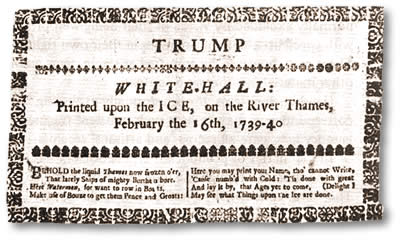 TRUMP
WHITE-HALL:
Printed upon the ICE, on the River Thames,
February the 16th, 1739-40
BEHOLD the liquid Thames now frozen o'er,
That lately Ships of mighty Burthen bore.
Here Watermen, for want to row in Boats,
Make use of Bouze to get them Pence and Groats:
Here you may print your Name, tho' cannot Write,
'Cause numb'd with Cold: 'Tis done with great
And lay it by, that Ages yet to come, (Delight
May see what Things upon the Ice are done.